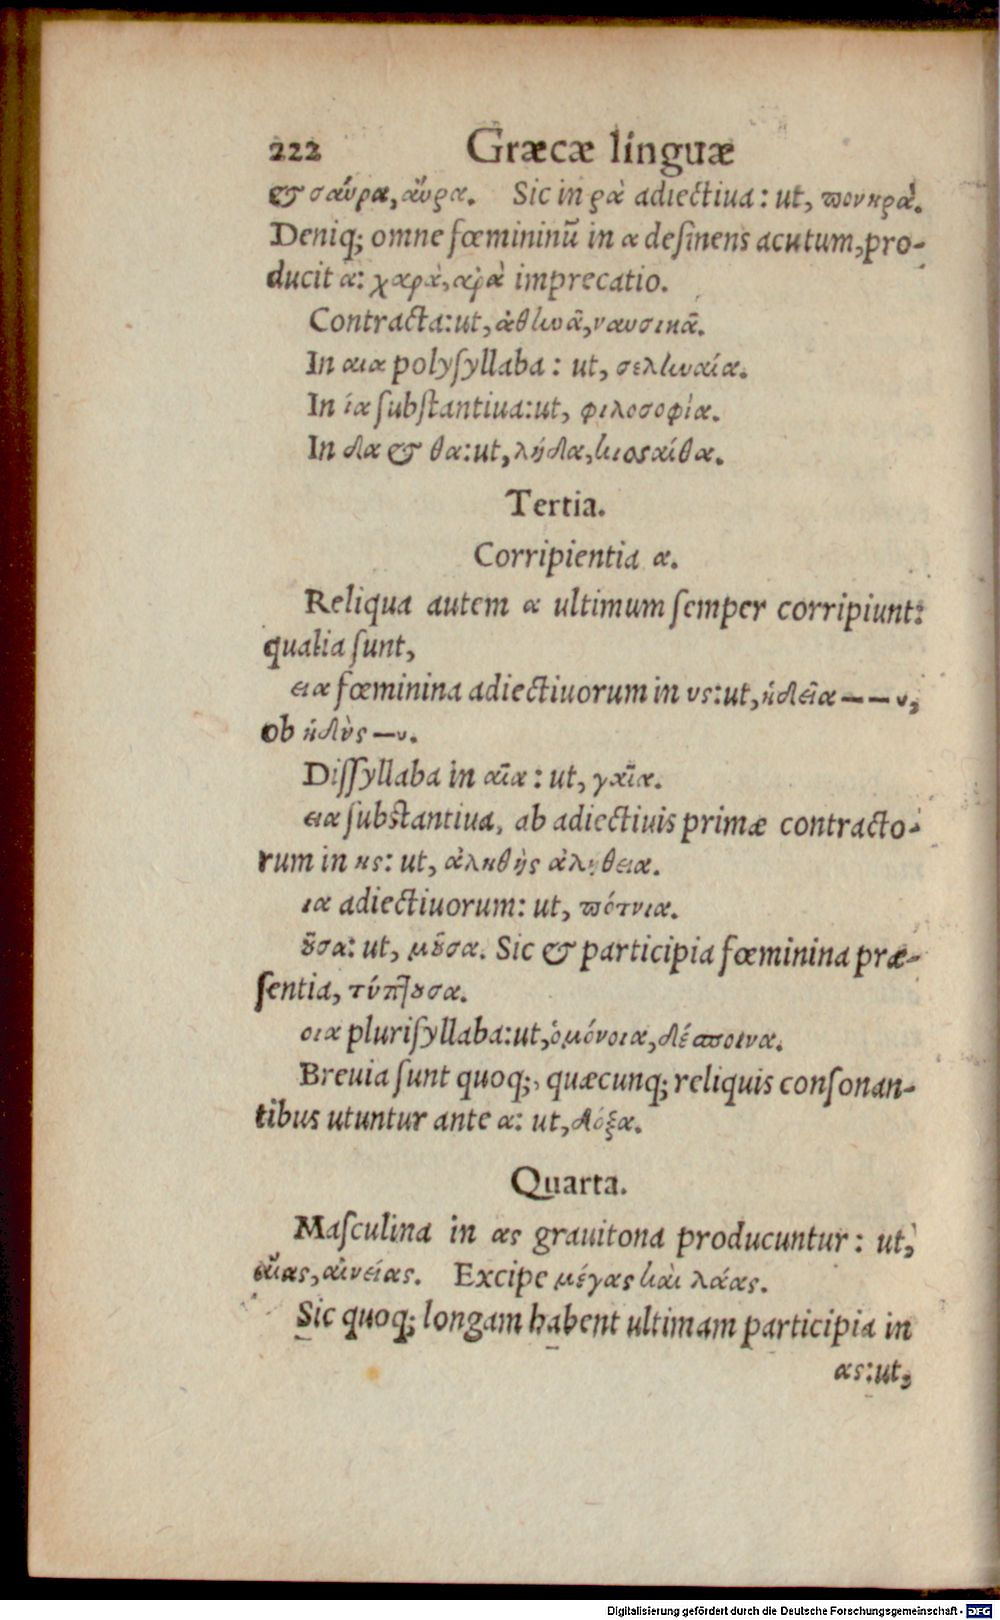 222 Græcæ linguæ
& σαύρα, αὔρα. Sic in ρὰ adiectiua: ut, πονηρὰ.
Deniq; omne fœmininū in α desinens acutum, pro-
ducit α: χαρὰ, ἀρὰ imprecatio.
Contracta: ut, ἀθηνᾶ, ναυσικᾶ.
In αια polysyllaba: ut, σεληναία.
In ία substantiua: ut, φιλοσοφία.
In δα & θα: ut, λήδα, κισσαίθα.
Tertia.
Corripientia α.
Reliqua autem α ultimum semper corripiunt:
qualia sunt,
εια fœminina adiectiuorum in υς: ut, ἡδεῖα — — υ,
ob ἡδὺς —υ.
Dissyllaba in αῖα: ut, γαῖα.
εια substantiua, ab adiectiuis primæ contracto-
rum in ης: ut, ἀληθὴς ἀλήθεια.
ια adiectiuorum: ut, πότνια.
οῦσα: ut, μοῦσα. Sic & participia fœminina præ-
sentia, τύπτουσα.
οια plurisyllaba: ut, ὁμόνοια, δέσποινα.
Breuia sunt quoq;, quæcunq; reliquis consonan-
tibus utuntur ante α: ut, δόξα.
Quarta.
Masculina in ας grauitona producuntur: ut,
αἴας, αἰνείας. Excipe μέγας καὶ λάας.
Sic quoq; longam habent ultimam participia in
ας: ut,
Digitalisierung gefördert durch die Deutsche Forschungsgemeinschaft - DFG